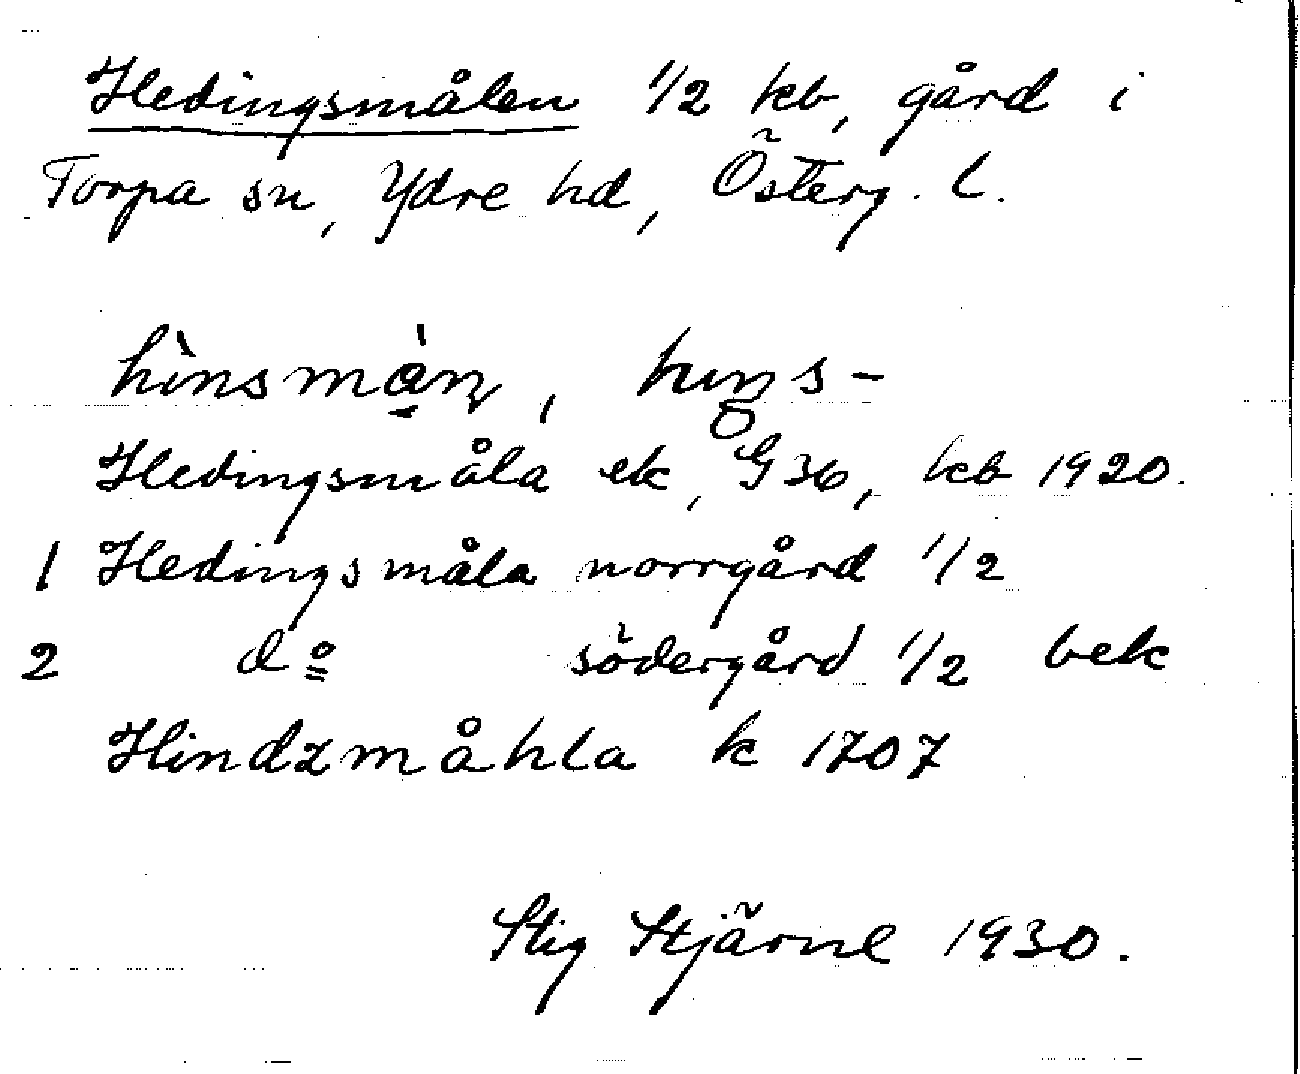 Hedingsmålen 1/2 kb, gård i
Torpa sn, Ydre hd, Österg. l.
hìnsmàn,
Hedingsmåla ek, G 36, kb 1920.
1 Hedingsmåla norrgård 1/2
2 do södergård 1/2 bek
Hindzmåhla k 1707
Stig Stjärne 1930.